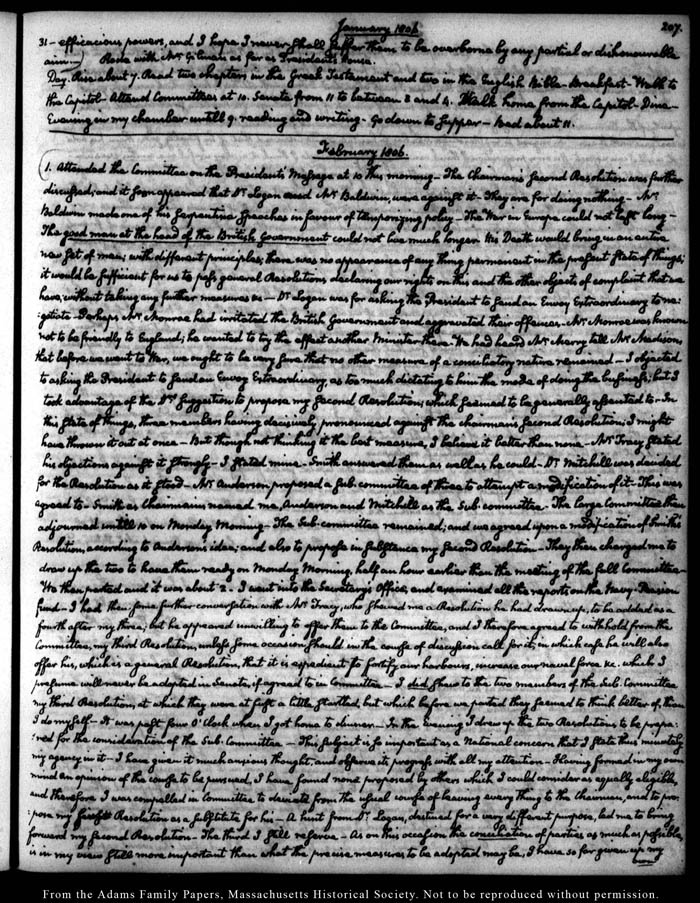 January 1806.
207.
31 - efficacious powers, and I hope I never shall suffer them to be overborne by any partial or dishonourable
aim —) Rode with Mr Gilman as far as President's house.
Day. Rise about 7. Read two chapters in the Greek Testament and two in the English Bible - Breakfast - Walk to
the Capitol - Attend Committees at 10. Senate from 11 to between 3 and 4. Walk home from the Capitol - Dine -
Evening in my chamber untill 9. reading and writing - Go down to supper - Bed about 11.
February 1806.
1. Attended the Committee on the President's Message at 10 this morning - The Chairman's second Resolution was further
discussed; and it soon appeared that Dr Logan and Mr Baldwin, were against it - They are for doing nothing - Mr
Baldwin made one of his serpentine speeches in favour of temporizing policy - The War in Europe could not last long -
The good man at the head of the British Government could not live much longer. His Death would bring in an entire
new set of men; with different principles; there was no appearance of any thing permanent in the present state of things;
it would be sufficient for us to pass general Resolutions declaring our rights on this and the other objects of complaint that we
have; without taking any further measures — Dr Logan was for asking the President to send an Envoy Extraordinary to ne:
:gotiate - Perhaps Mr Monroe had irritated the British Government and aggravated their offences - Mr Monroe was known
not to be friendly to England; he wanted to try the effect another Minister there. We had heard Mr Merry tell Mr Madison,
that before we went to War, we ought to be very sure that no other measure of a conciliatory nature remained - I objected
to asking the President to send an Envoy Extraordinary, as too much dictating to him the mode of doing the business; but I
took advantage of the Dr's suggestion to propose my second Resolution; which seemed to be generally assented to - In
this state of things, three members having decisively pronounced against the chairman's second Resolution; I might
have thrown it out at once - But though not thinking it the best measure, I believe it better than none - Mr Tracy stated
his objections against it strongly - I stated mine - Smith answered them as well as he could - Dr Mitchell was decided
for the Resolution as it stood - Mr Anderson, proposed a sub-committee of three to attempt a modification of it - This was
agreed to - Smith as Chairman named me, Anderson and Mitchell as the Sub-committee - The large Committee then
adjourned untill 10 on Monday Morning - The Sub-committee remained; and we agreed upon a modification of Smith's
Resolution, according to Anderson's idea; and also to propose in substance my second Resolution - They then charged me to
draw up the two to have them ready on Monday Morning, half an hour earlier than the meeting of the full Committee -
We then parted and it was about 2 - I went into the Secretary's Office, and examined all the reports on the Navy-Pension
fund - I had then some further conversation with Mr Tracy, who shewed me a Resolution he had drawn up, to be added as a
fourth after my three; but he appeared unwilling to offer them to the Committee, and I therefore agreed to withhold from the
Committee, my third Resolution, unless some occasion should in the course of discussion call for it; in which case he will also
offer his, which is a general Resolution, that it is expedient to fortify our harbours, increase our naval force &c. which I
presume will never be adopted in Senate, if agreed to in Committee - I did shew to the two members of the Sub-Committee
my third Resolution, at which they were at first a little startled, but which before we parted they seemed to think better of, than
I do myself - It was past four O'Clock when I got home to dinner - In the evening I drew up the two Resolutions to be prepa:
:red for the consideration of the Sub-Committee - This subject is so important as a National concern that I state thus minutely
my agency in it - I have given it much anxious thought, and observe its progress with all my attention - Having formed in my own
mind an opinion of the course to be pursued, I have found none proposed by others which I could consider as equally eligible,
and therefore I was compelled in Committee to deviate from the usual course of leaving every thing to the Chairman, and to pro:
:pose my first Resolution as a substitute for his - A hint from Dr Logan, destined for a very different purpose, led me to bring
forward my second Resolution - The third I still reserve - As on this occasion the conciliation of parties as much as possible,
is in my view still more important than what the precise measures to be adopted may be, I have so far given up my
own
From the Adams Family Papers, Massachusetts Historical Society. Not to be reproduced without permission.